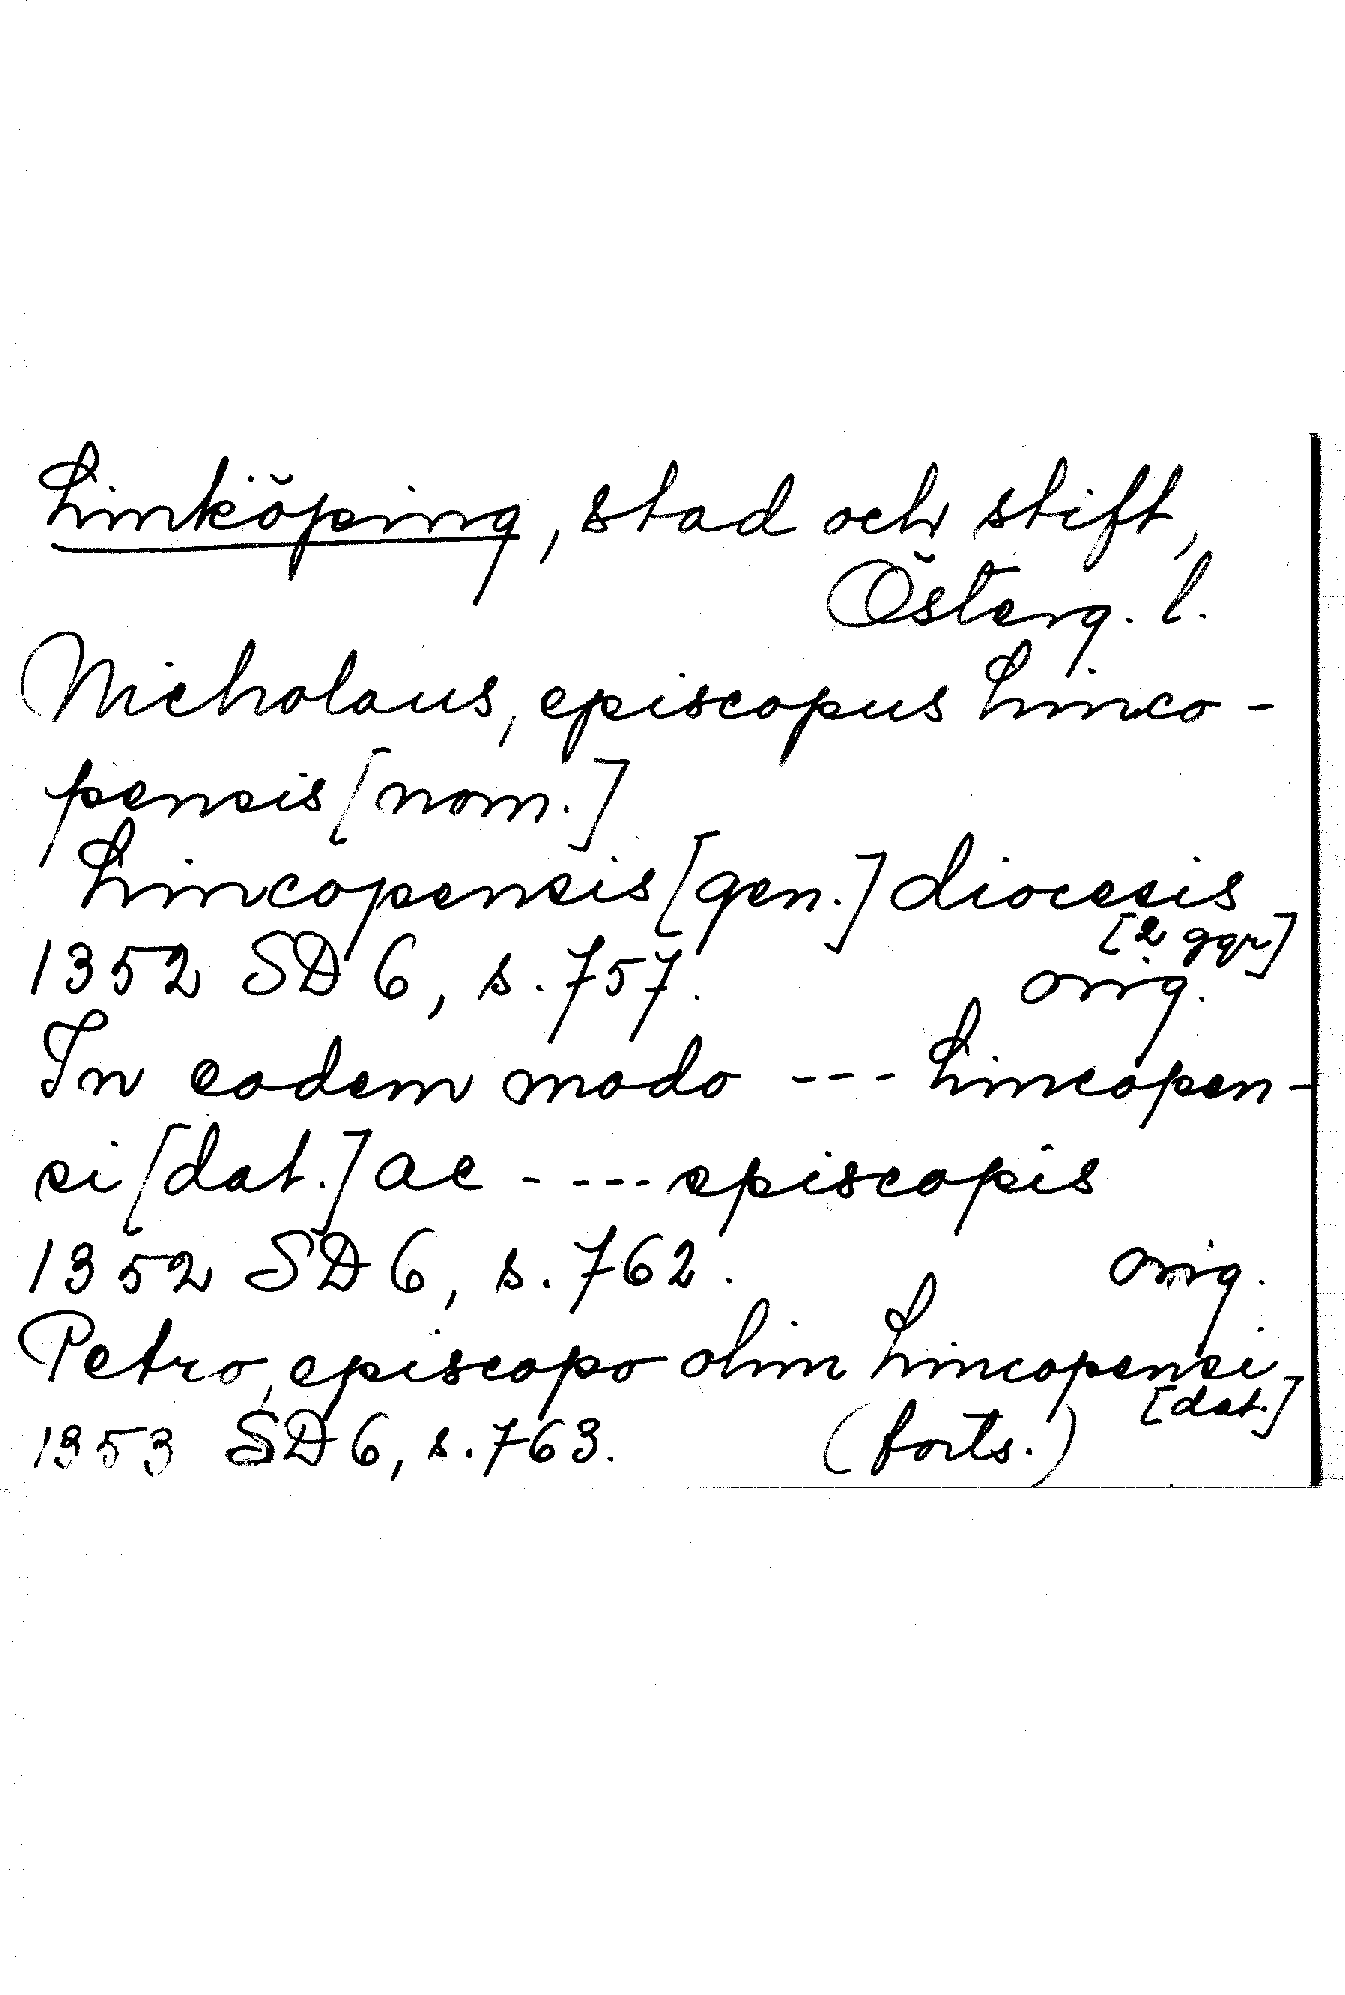 Linköping, stad och stift,
Österg. l.
Nicholaus, episcopus Linco-
pensis [nom.]
Lincopensis [gen.] diocesis
[2 ggr]
1352 SD 6, s. 757. orig.
In eodem modo --- Lincopen-
si [dat.] ac ---- episcopis
1352 SD 6, s. 762. orig.
Petro, episcopo olim Lincopensi
[dat.]
1353 SD 6, s. 763. (forts.)